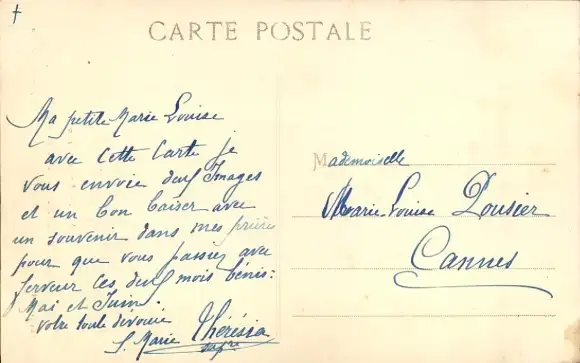 CARTE POSTALE
Ma petite Marie Louise
avec cette Carte je
vous envoie deux Images
et un bon baiser avec
un souvenir dans mes prières
pour que vous passiez avec
ferveur ces deux mois bénis:
Mai et Juin.
votre toute dévouée
S. Marie Thérésia
Mademoiselle
Marie-Louise
Cannes